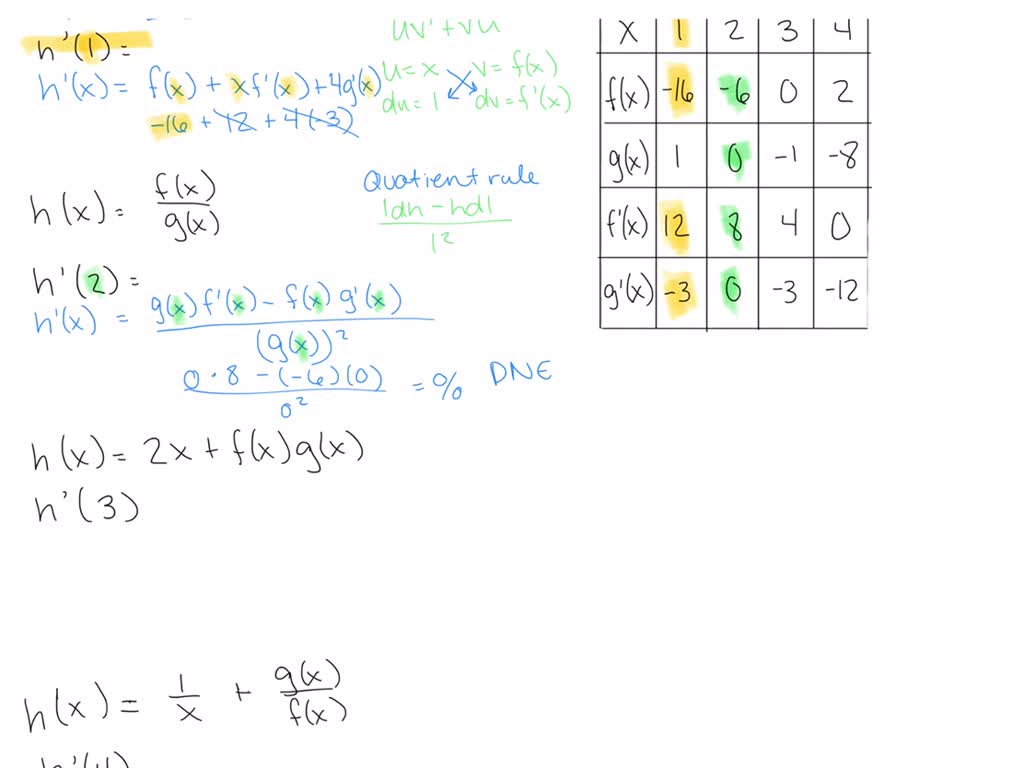 h'(1) =
h'(x) = f(x) + xf'(x) + 4g'(x)
-16 + 12 + 4(-3)
uv' + vu
u = x v = f(x)
du = 1 dv = f'(x)
h(x) = f(x)/g(x)
Quotient rule
ldh - hdl
l²
h'(2) =
h'(x) = g(x)f'(x) - f(x)g'(x)
(g(x))²
0 · 8 - (-6)(0) = 0/0 DNE
0²
h(x) = 2x + f(x)g(x)
h'(3)
h(x) = 1/x + g(x)/f(x)
h'(4)
x 1 2 3 4
f(x) -16 -6 0 2
g(x) 1 0 -1 -8
f'(x) 12 8 4 0
g'(x) -3 0 -3 -12